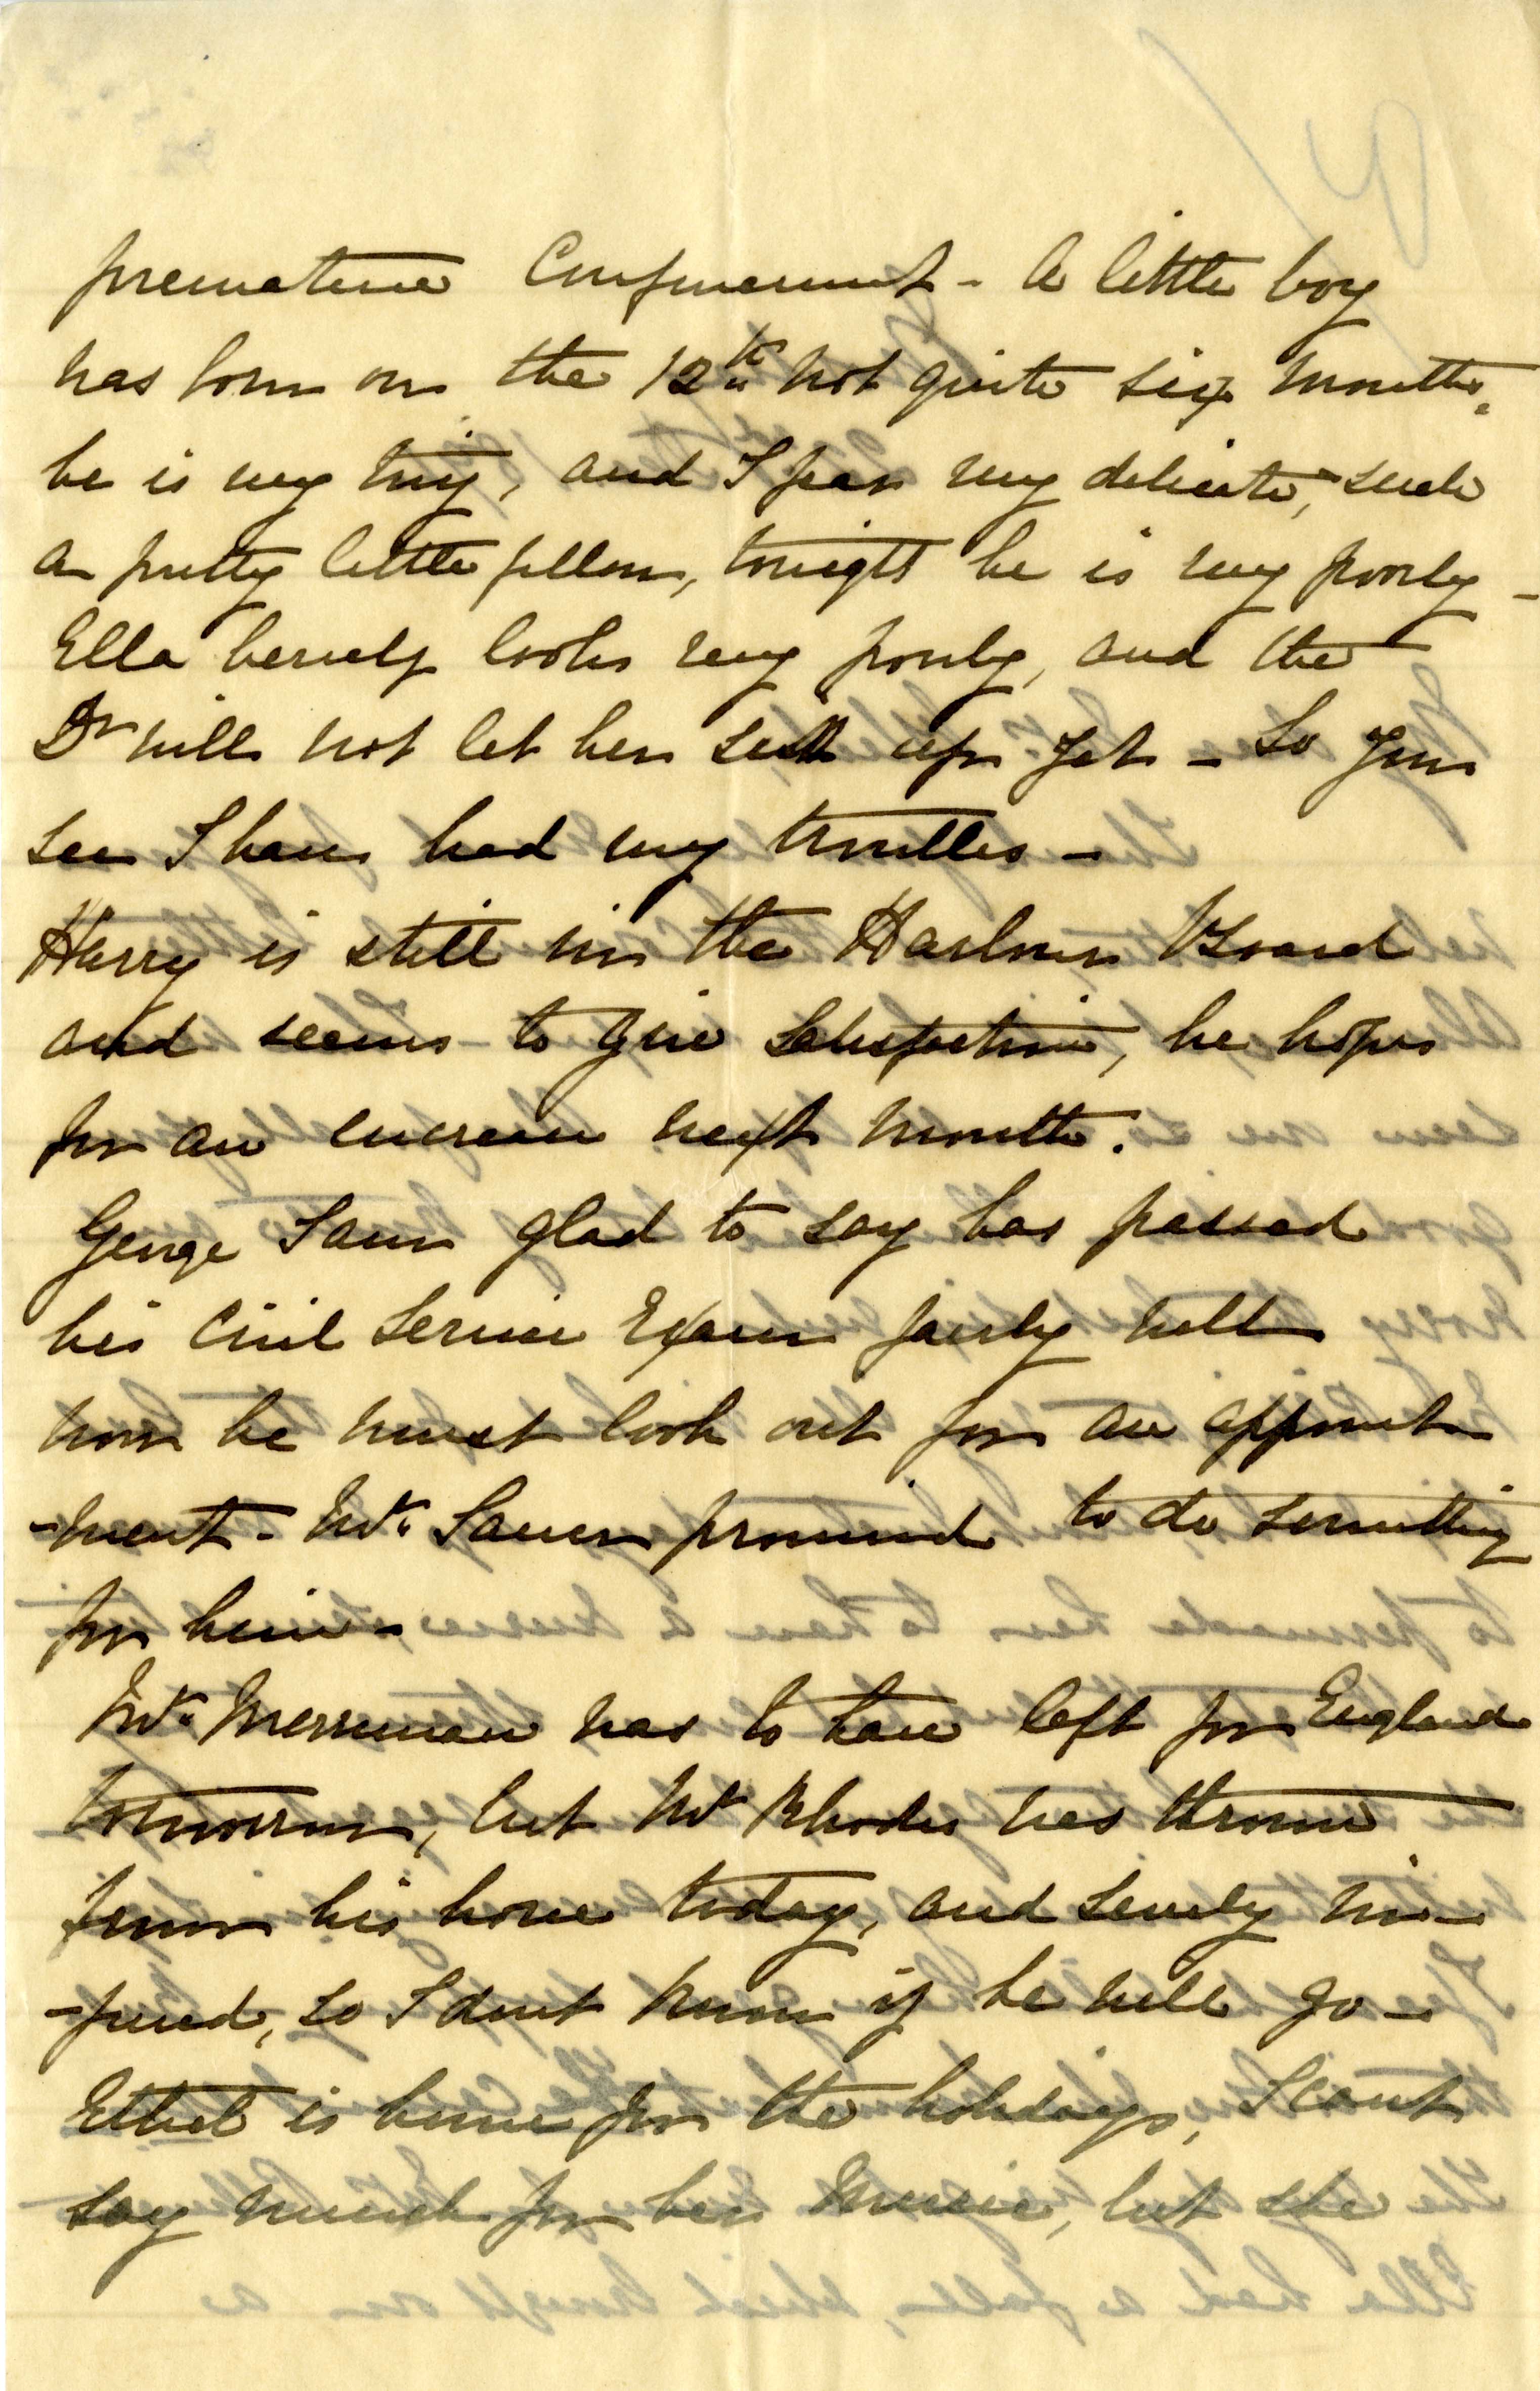 premature Confinement - A little boy
was born on the 12th not quite six months.
he is very tiny, and I fear very delicate, such
a pretty little fellow, tonight he is very poorly -
Ella herself looks very poorly, and the
Dr will not let her sit up yet - So you
see I have had my troubles -
Harry is still in the Harbour Board
and seems to give satisfaction, he hopes
for an increase next month.
George I am glad to say has passed
his Civil Service Exam fairly well
now he must look out for an appoint
-ment - Mr. Sauer promised to do something
for him -
Mr. Merriman was to have left for England
tomorrow, but Mr Rhodes was thrown
from his horse today, and severely in-
-jured, so I dont know if he will go -
Ethel is home for the holidays, I cant
say much for her Music, but she